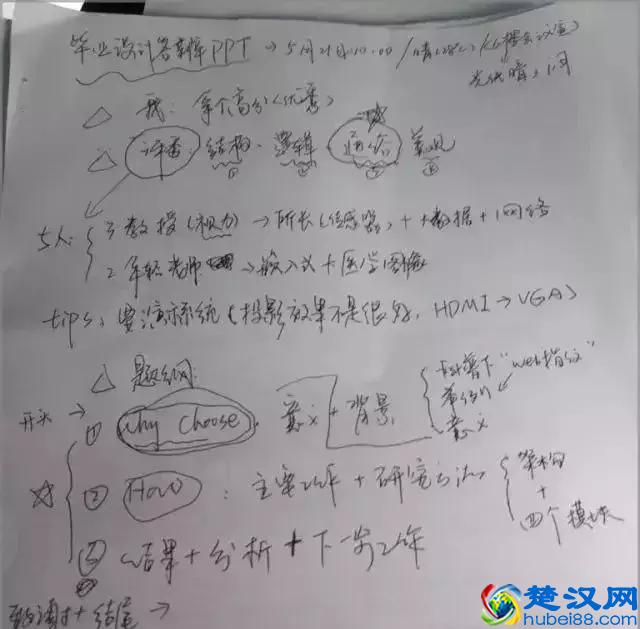 毕业设计答辩PPT → 5月21日10:00 /晴(28℃)/
光线暗,1间
△ 我: 拿个高分(优秀)
△ 评委: 结构、逻辑 通俗 美观
5人: 3教授(视力)→所长(传感器)+大数据+1网络
2年轻老师 → 嵌入式+医学图像
tips: 要演示系统(投影效果不是很好, HDMI→VGA)
△ 题纲:
开头 → ① Why Choose. 意义+背景 "web指纹" 举例 意义
② How : 主要工作+研究方法 架构 + 四个模块
③ 结果+分析+下一步工作
致谢+结尾 →
楚汉网
hubei88.com